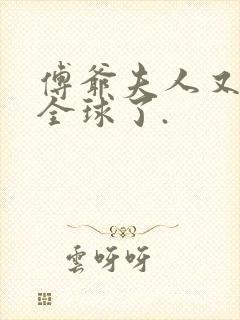 傅爺夫人又
全球了.
雲呀呀